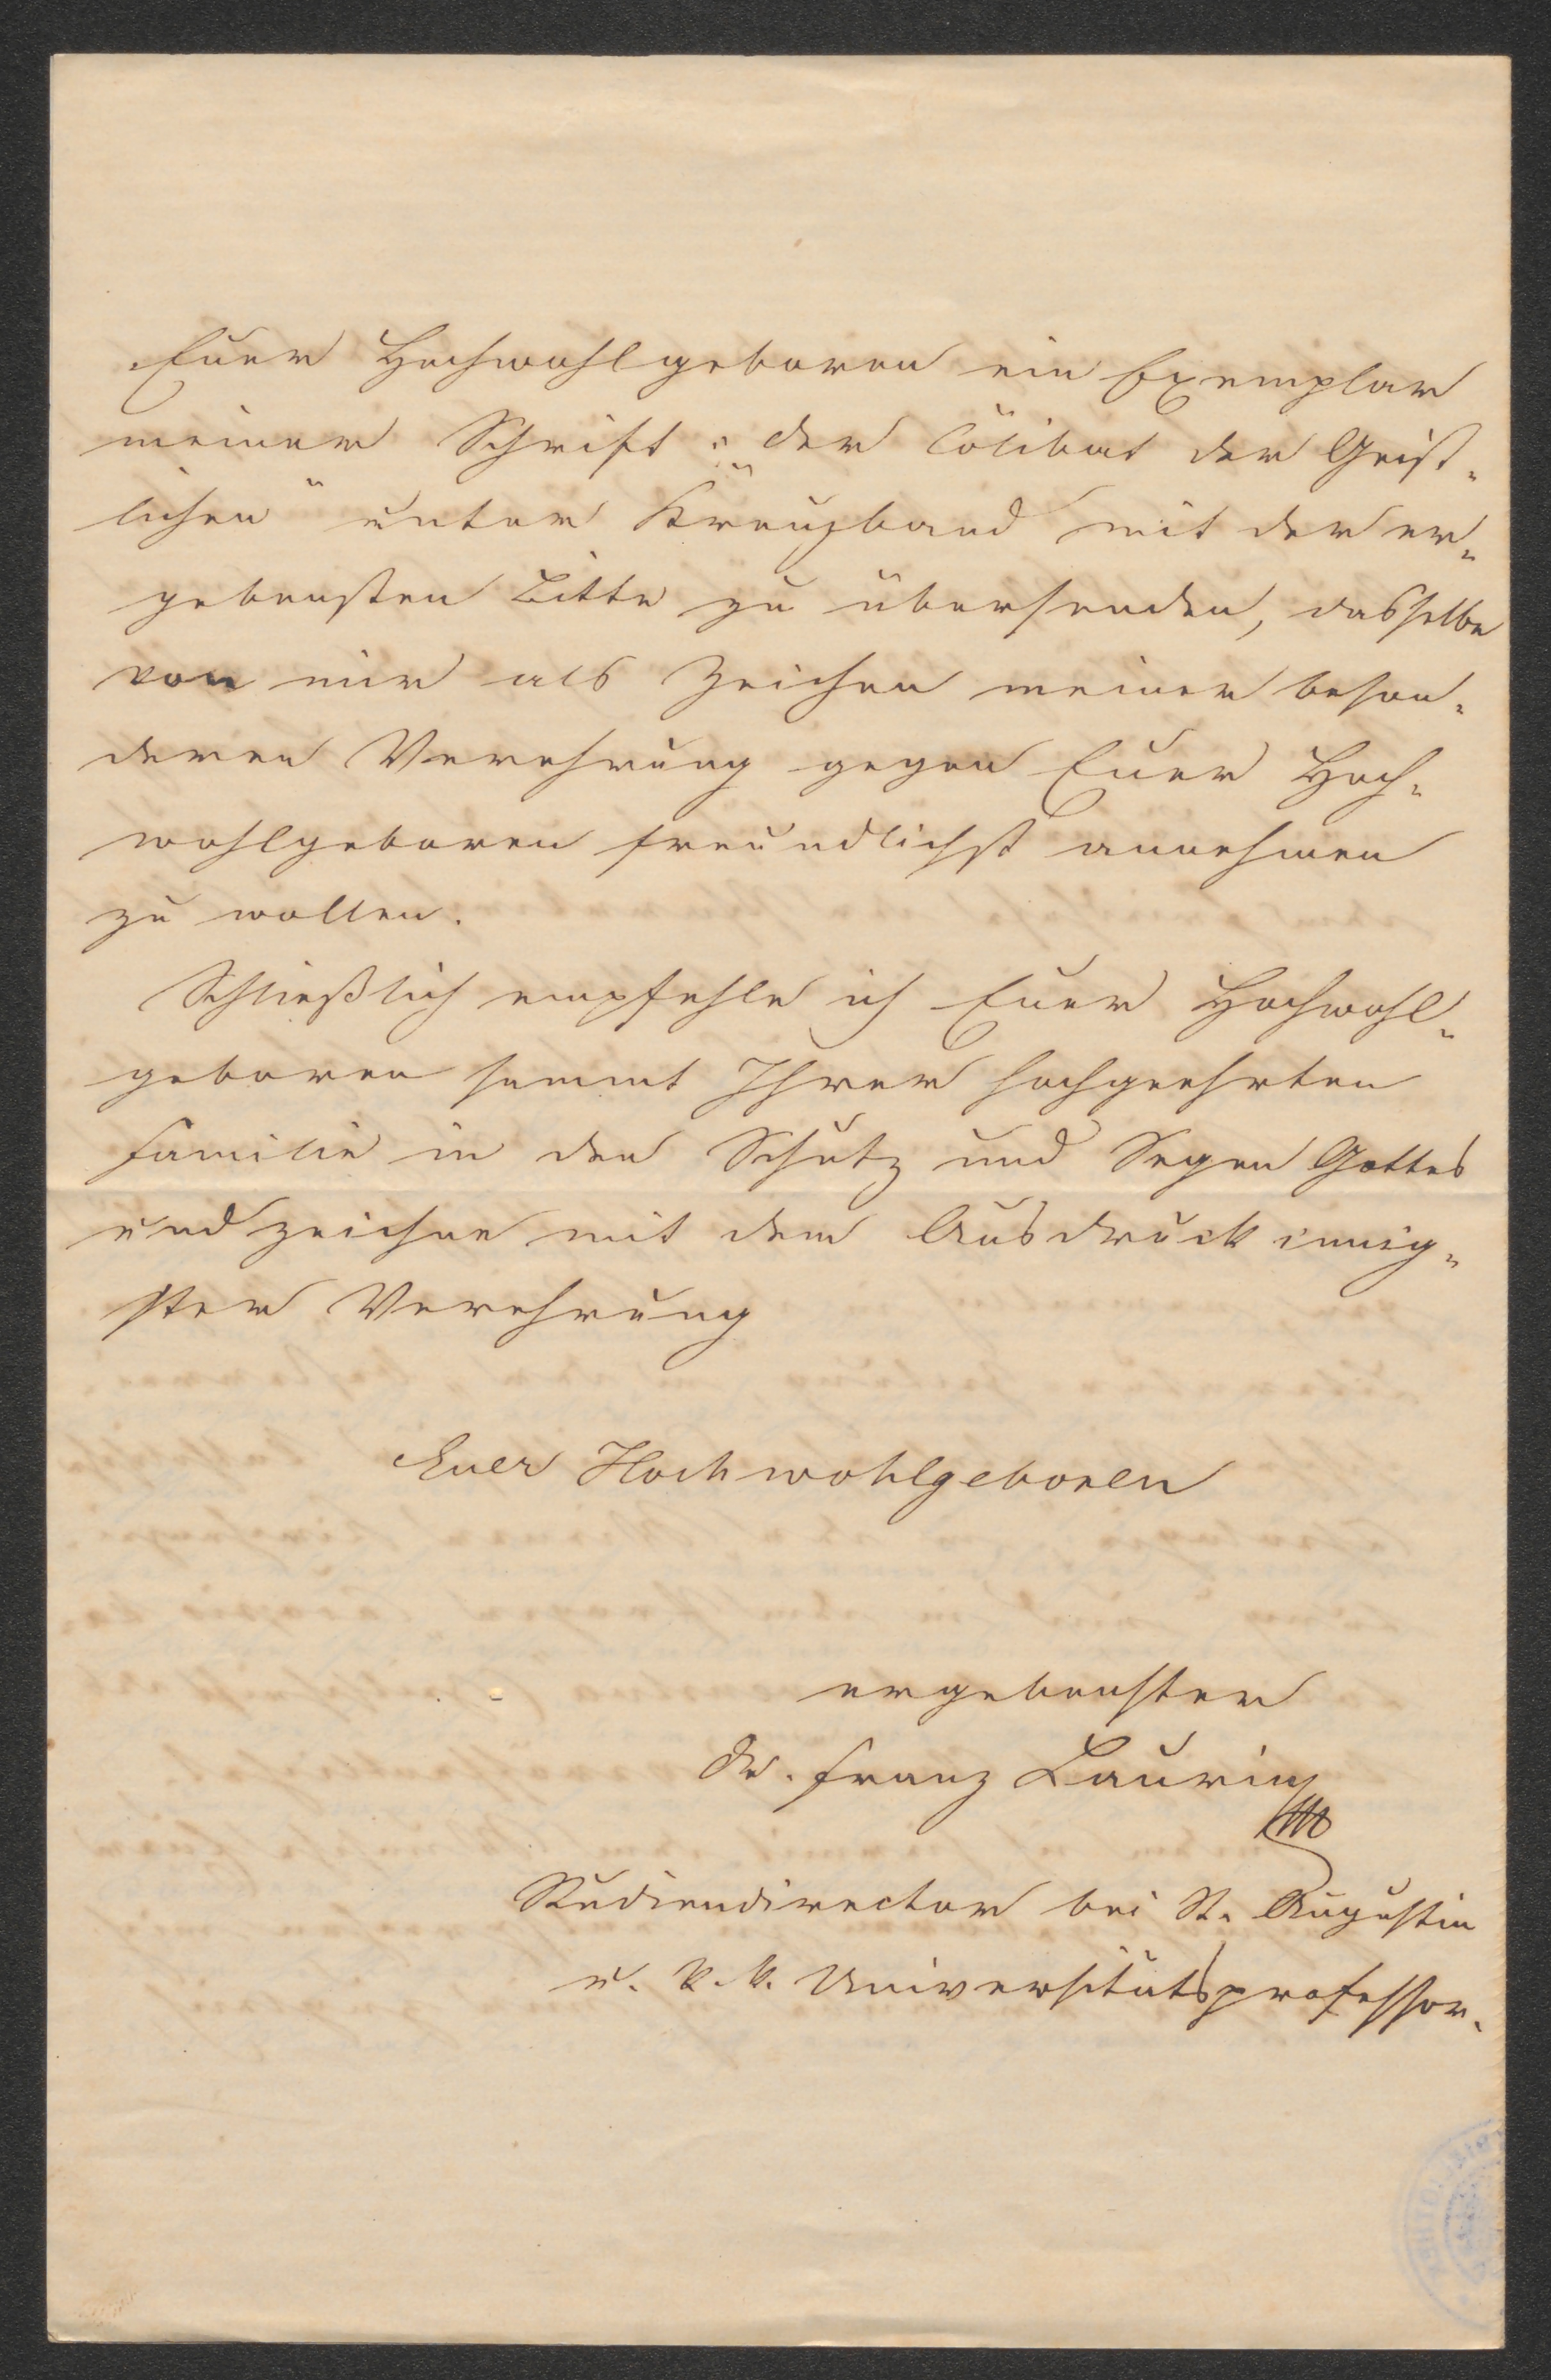 Euer Hochwohlgeboren ein Exemplar
meiner Schrift: „der Cölibat der Geist-
lichen" unter Kreuzband mit der er-
gebensten Bitte zu übersenden, dasselbe
von mir als Zeichen meiner beson-
deren Verehrung gegen Euer Hoch-
wohlgeboren freundlichst annehmen
zu wollen.
Schließlich empfehle ich Euer Hochwohl-
geboren sammt Ihrer hochgeehrten
Familie in den Schutz und Segen Gottes
und zeichne mit dem Ausdruck innig-
ster Verehrung
Euer Hochwohlgeboren
ergebenster
Dr. Franz Laurin
Studiendirector bei St. Augustin
u. k. k. Universitätsprofessor.